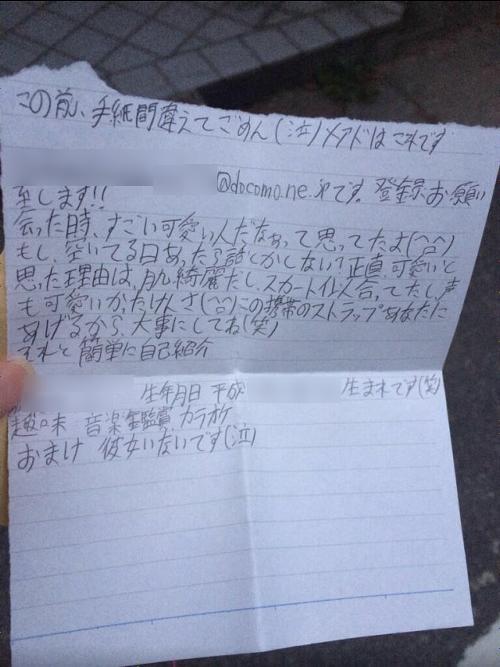 この前、手紙間違えてごめん(泣)メアドはこれです
@docomo.ne.jpです。登録お願い
至します!!
会った時、すごい可愛い人だなぁって思ってたよ(^o^)
もし、空いてる日あったら話とかしない?正直、可愛いと
思った理由は、肌綺麗だし、スカート似合ってたし、声
も可愛いかったけんさ(^o^)この携帯のストラップあなたに
あげるから、大事にしてね(笑)
それと簡単に自己紹介
生年月日 平成 生まれです(笑)
趣味 音楽鑑賞 カラオケ
おまけ 彼女いないです(泣)